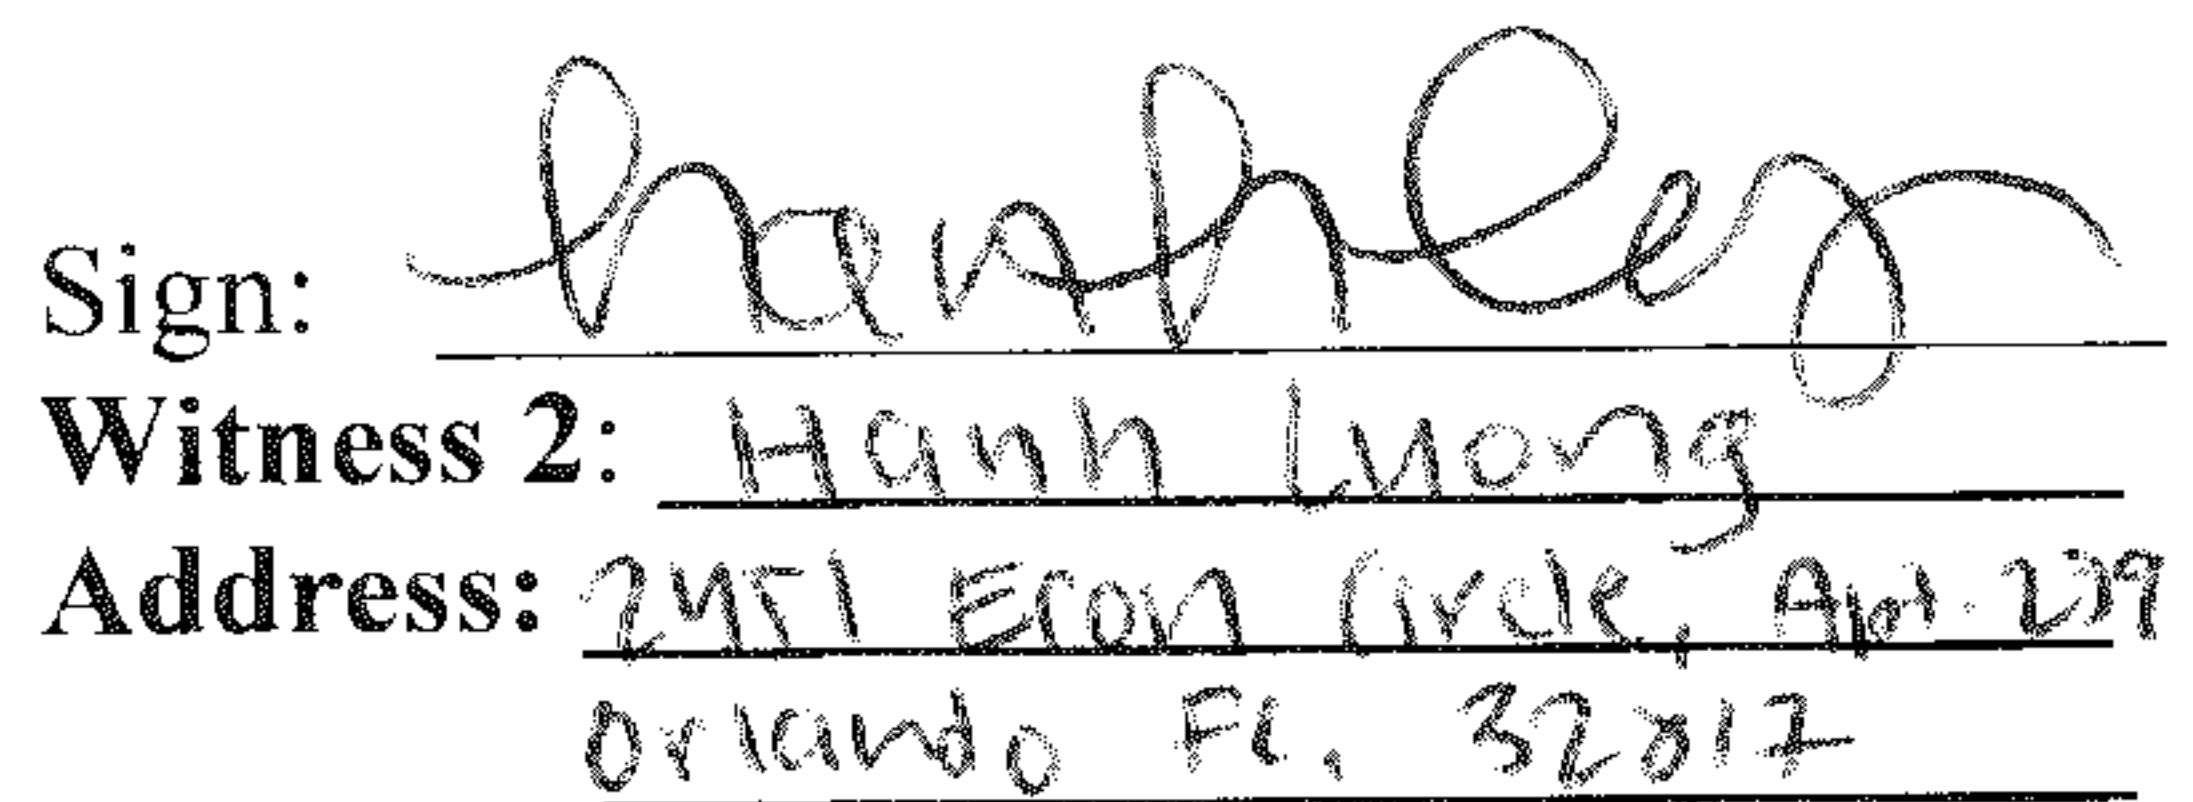 Sign: hanhley
Witness 2: Hanh Luong
Address: 2451 Econ Circle, Apt. 239
Orlando FL, 32817